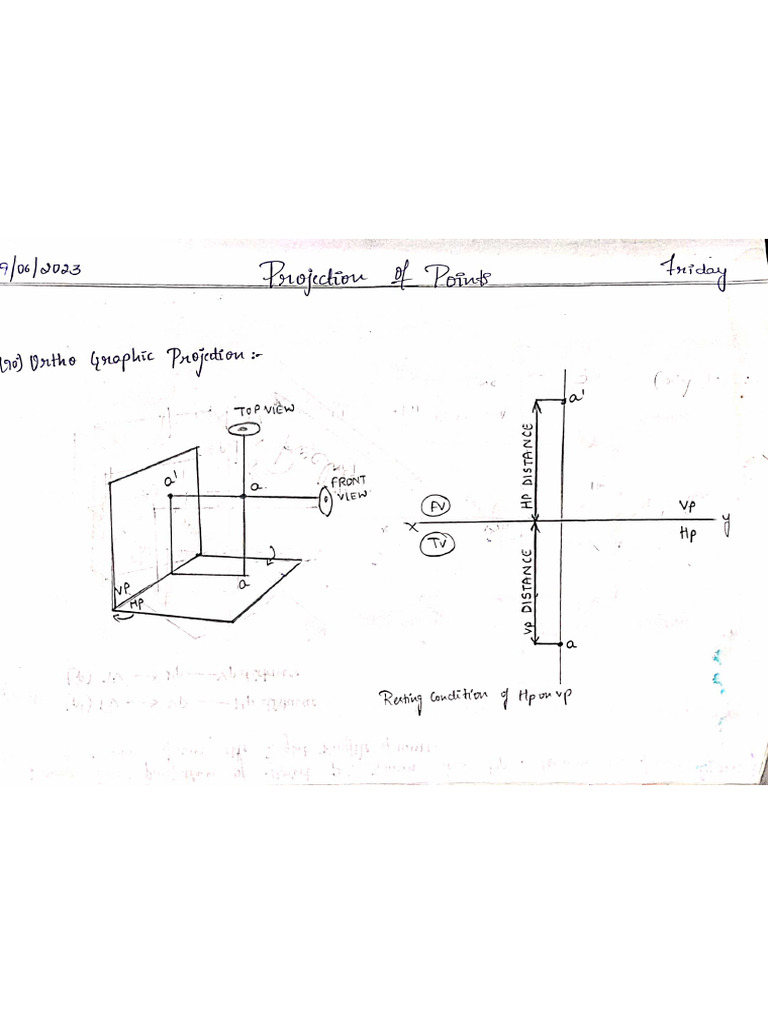 9/06/2023 Projection of Points Friday
(90) Ortho Graphic Projection :-
TOP VIEW
a'
a
FRONT
VIEW
VP
HP
a
a'
HP DISTANCE
FV
VP
X
y
TV
HP
VP DISTANCE
a
Resting condition of Hp on vp